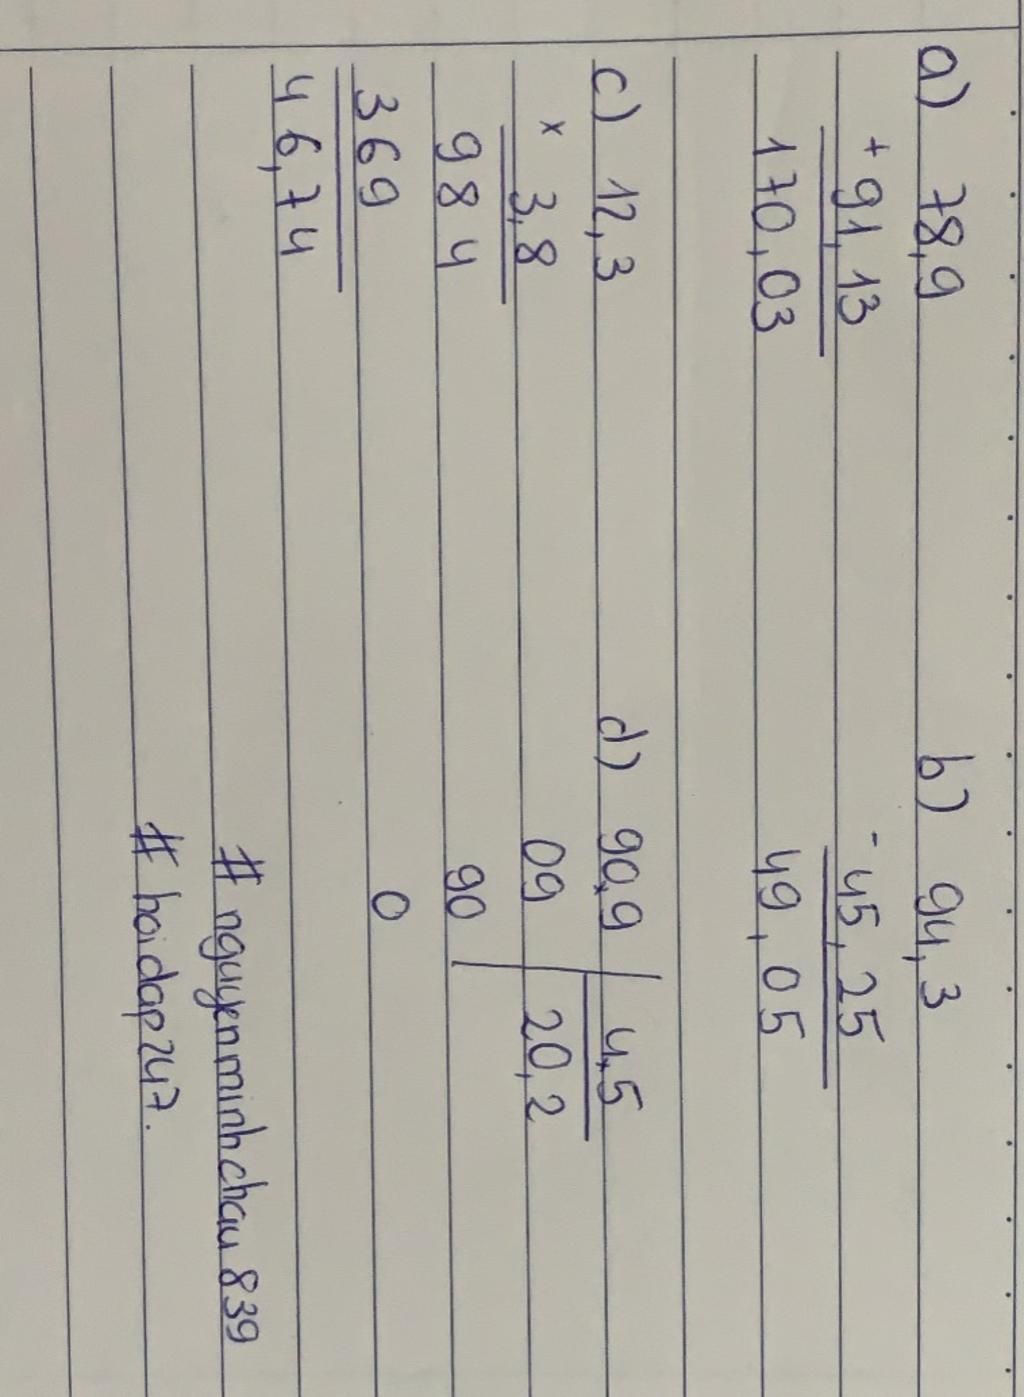 a) 78,9
+ 91,13
170,03
b) 94,3
- 45,25
49,05
c) 12,3
x 3,8
984
369
46,74
d) 90,9 4,5
09 20,2
90
0
# nguyenminhchau839
# hoidap247.